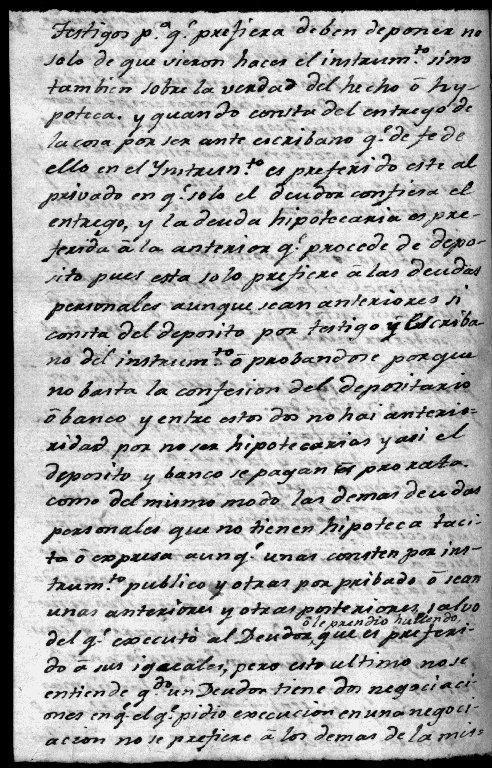 testigos p.ª q.ᵉ prefiera deben deponer no
solo de que vieron hacer el instrum.ᵗᵒ sino
tambien sobre la verdad del hecho ô hy-
poteca. y quando consta del entrego de
la cosa por ser ante escribano q.ᵉ de fe de
ello en el Instrum.ᵗᵒ es preferido este al
privado en q.ᵉ solo el deudor confiesa el
entrego, y la deuda hipotecaria es pre-
ferida â la anterior q.ᵉ procede de depo-
sito pues esta solo prefiere â las deudas
personales aunque sean anteriores si
consta del deposito por testigo y Escriba-
no del instrum.ᵗᵒ ô probandose porque
no basta la confesion del depositario
ô banco y entre estos dos no hai anterio-
ridad por no ser hipotecarios y asi el
deposito y banco se pagan prorata.
como del mismo modo las demas deudas
personales que no tienen hipoteca taci-
ta ô expresa aunq.ᵉ unas consten por ins-
trum.ᵗᵒ publico y otras por pribado ô sean
unas anteriores y otras posteriores, salvo
ô le prendio hullendo,
del q.ᵉ executó al Deudor, que es preferi-
do â sus iguales, pero esto ultimo no se
entiende q.ᵈᵒ un Deudor tiene dos negociaci-
ones en q.ᵉ el q.ᵉ pidio execucion en una negoci-
acion no se prefiere â los demas de la mis-